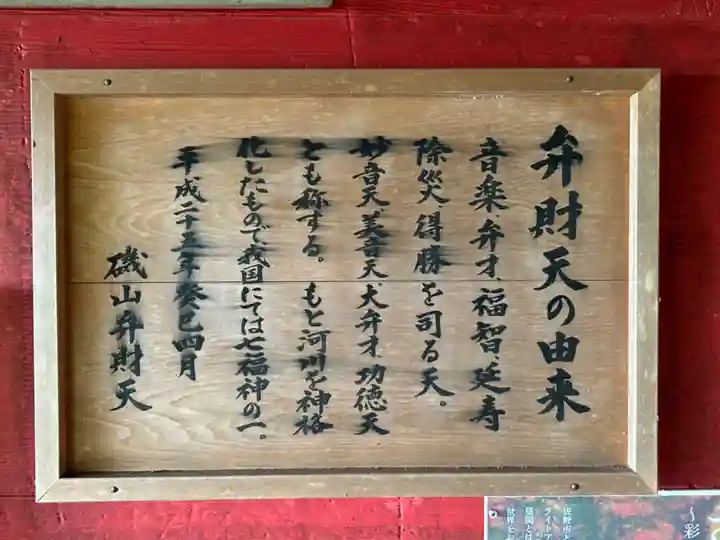 弁財天の由来
音楽、弁才、福智、廷寿
除災得勝を司る天。
妙音天、美音天、大弁才、功徳天
とも称する。もと河川を神格
化したもので我国にては七福神の一。
平成二十五年癸巳四月
磯山弁財天
～彩
佐野市と
ライトア